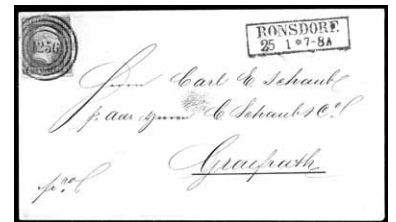 1256
RONSDORF
25 1 * 7-8A
Herrn Carl E Schaub
C Schaub & Co.
Graefrath